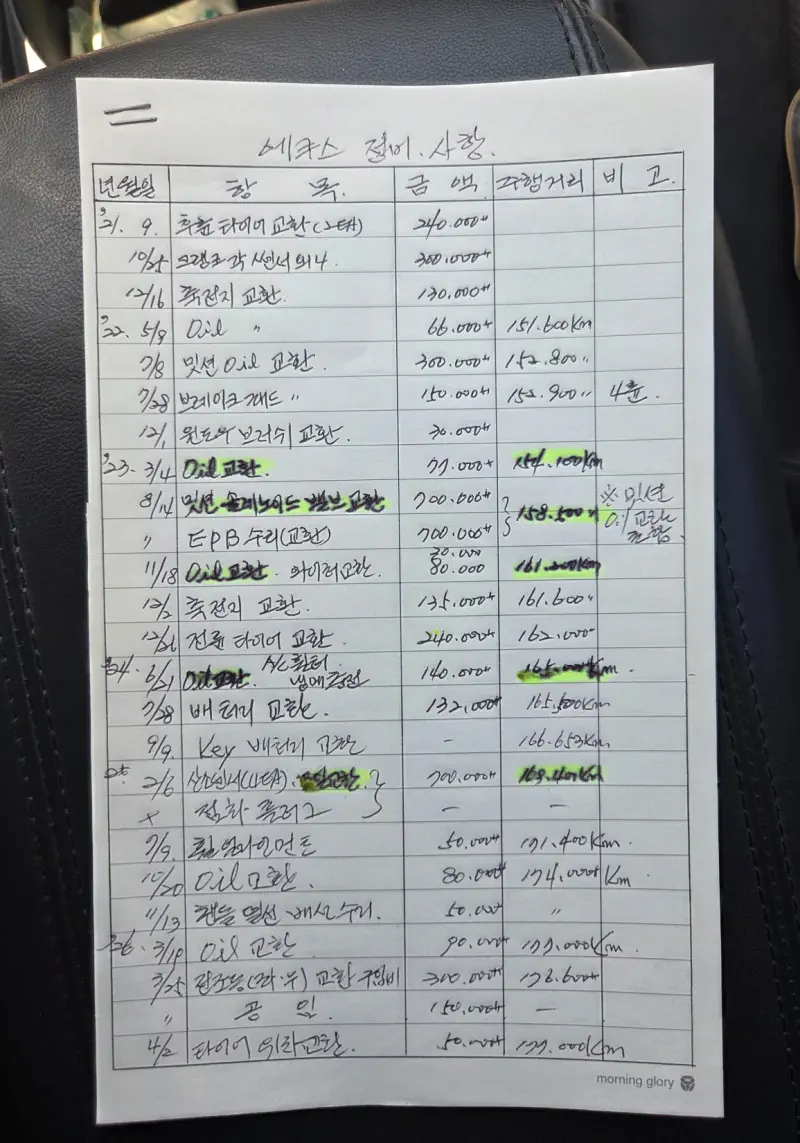 에쿠스 정비.사항.
년월일 항 목. 금 액 주행거리 비 고.
'21. 9. 후륜 타이어 교환(2EA) 240.000
10/25 크랭크각 쎈서 외4. 300.000
12/16 축전지 교환. 130.000
'22. 5/9 Oil 〃 66.000 151.600Km
7/8 밋션 Oil 교환. 300.000 152.800〃
7/28 브레이크 패드 〃 150.000 152.900〃 4륜.
12/1 윈도우 브러쉬 교환. 30.000
'23. 3/4 Oil 교환. 77.000 154.100Km
8/14 밋션 솔레노이드 밸브 교환 700.000 158.500 ※ 밋션
〃 EPB 수리(교환) 700.000 Oil 교환 포함.
11/18 Oil 교환. 와이퍼교환. 30.000 80.000 161.200Km
12/2 축전지 교환. 135.000 161.600〃
12/26 전륜 타이어 교환 240.000 162.000
'24. 6/21 Oil 교환. A/C 휠터. 냉매충전 140.000 165.000Km.
7/28 배터리 교환. 132.000 165.500Km
9/9. Key 배터리 교환 - 166.653Km
25 2/6 산소쎈서(4EA). 교환. 700.000 168.400Km
점화 플러그 - -
7/9. 휠얼라인먼트 50.000 171.400Km.
10/20 Oil 교환. 80.000 174.000Km
11/13 핸들 열선 배선 수리. 50.000 〃
'26. 3/10 Oil 교환 90.000 177.000Km.
3/25 (좌.우) 교환 구입비 300.000 176.600
〃 공 임. 150.000 -
4/2 타이어 위치교환. 50.000 177.000Km
morning glory